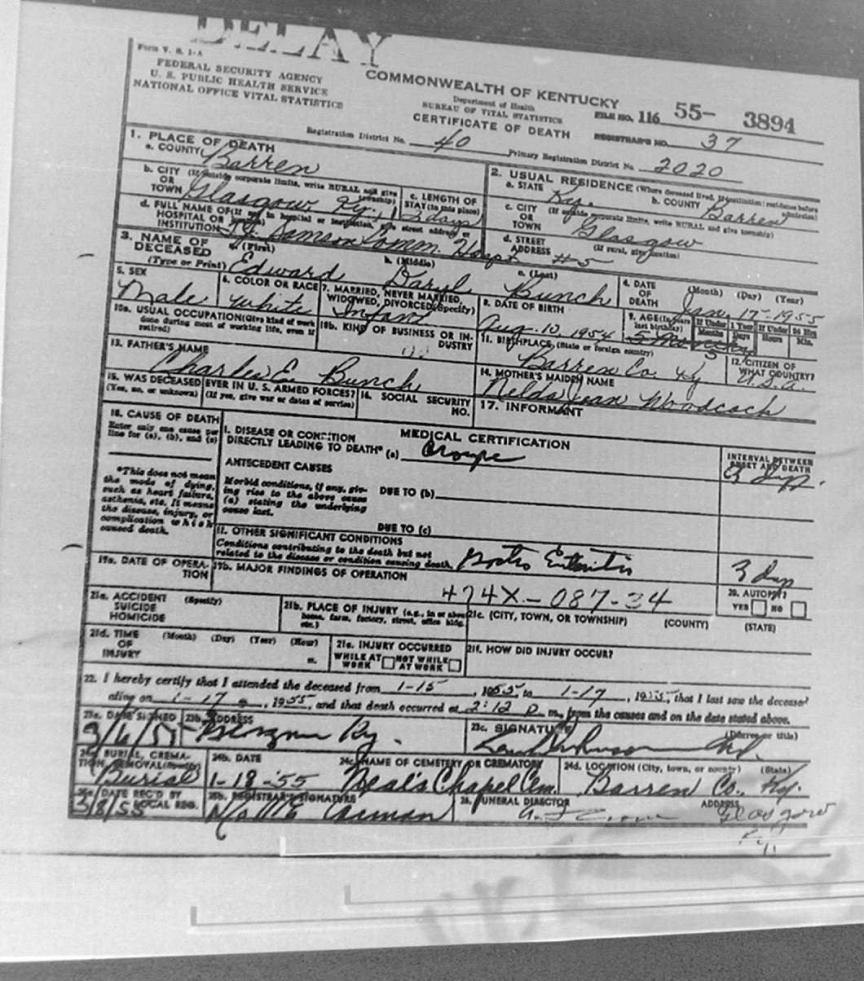 DELAY
Form V. S. 1-A
FEDERAL SECURITY AGENCY
U. S. PUBLIC HEALTH SERVICE
NATIONAL OFFICE VITAL STATISTICS
COMMONWEALTH OF KENTUCKY
Department of Health
BUREAU OF VITAL STATISTICS
CERTIFICATE OF DEATH
FILE NO. 116 55- 3894
REGISTRAR'S NO. 37
Registration District No. 40 Primary Registration District No. 2020
1. PLACE OF DEATH
a. COUNTY Barren
b. CITY (If outside corporate limits, write RURAL and give
OR
TOWN Glasgow Ky.
c. LENGTH OF
STAY (in this place)
2 days
d. FULL NAME OF (If not in hospital or institution, give street address or
HOSPITAL OR
INSTITUTION T. J. Samson Comm. Hospt
2. USUAL RESIDENCE (Where deceased lived. If institution: residence before
admission)
a. STATE Ky. b. COUNTY Barren
c. CITY (If outside corporate limits, write RURAL and give township)
OR
TOWN Glasgow
d. STREET (If rural, give location)
ADDRESS #5
3. NAME OF
DECEASED
(Type or Print)
(First) b. (Middle) c. (Last)
Edward Daryl Bunch
4. DATE (Month) (Day) (Year)
OF
DEATH Jan. 17-1955
5. SEX
Male
6. COLOR OR RACE
White
7. MARRIED, NEVER MARRIED,
WIDOWED, DIVORCED (Specify)
Infant
8. DATE OF BIRTH
Aug. 10, 1954
9. AGE (In years
last birthday)
If Under 1 Year If Under 24 Hrs
Months Days Hours Min.
5
10a. USUAL OCCUPATION (Give kind of work
done during most of working life, even if
retired)
10b. KIND OF BUSINESS OR IN-
DUSTRY
11. BIRTHPLACE (State or foreign country)
Barren Co. Ky
12. CITIZEN OF
WHAT COUNTRY?
U.S.A.
13. FATHER'S NAME
Charles E. Bunch
14. MOTHER'S MAIDEN NAME
Nelda Jean Woodcock
15. WAS DECEASED EVER IN U. S. ARMED FORCES?
(Yes, no, or unknown) (If yes, give war or dates of service)
16. SOCIAL SECURITY
NO.
17. INFORMANT
18. CAUSE OF DEATH
Enter only one cause per
line for (a), (b), and (c)
MEDICAL CERTIFICATION
I. DISEASE OR CONDITION
DIRECTLY LEADING TO DEATH* (a) Croupe
INTERVAL BETWEEN
ONSET AND DEATH
3 dys.
*This does not mean
the mode of dying,
such as heart failure,
asthenia, etc. It means
the disease, injury, or
complication which
caused death.
ANTECEDENT CAUSES
Morbid conditions, if any, giv-
ing rise to the above cause
(a) stating the underlying
cause last.
DUE TO (b)
DUE TO (c)
II. OTHER SIGNIFICANT CONDITIONS
Conditions contributing to the death but not
related to the disease or condition causing death. Gastro Enteritis
3 dys
19a. DATE OF OPERA-
TION
19b. MAJOR FINDINGS OF OPERATION
474X-087-34
20. AUTOPSY?
YES NO
21a. ACCIDENT (Specify)
SUICIDE
HOMICIDE
21b. PLACE OF INJURY (e.g., in or about
home, farm, factory, street, office bldg.
etc.)
21c. (CITY, TOWN, OR TOWNSHIP) (COUNTY) (STATE)
21d. TIME (Month) (Day) (Year) (Hour)
OF
INJURY m.
21e. INJURY OCCURRED
WHILE AT NOT WHILE
WORK AT WORK
21f. HOW DID INJURY OCCUR?
22. I hereby certify that I attended the deceased from 1-15, 1955 to 1-17, 1955, that I last saw the deceased
alive on 1-17, 1955, and that death occurred at 2:12 p m., from the causes and on the date stated above.
23a. DATE SIGNED
3/6/55
23b. ADDRESS
Ky.
23c. SIGNATURE (Degree or title)
MD.
24a. BURIAL, CREMA-
TION, REMOVAL (Specify)
Burial
24b. DATE
1-18-55
24c. NAME OF CEMETERY OR CREMATORY
Neal's Chapel Cem.
24d. LOCATION (City, town, or county) (State)
Barren Co. Ky.
25a. DATE REC'D BY
LOCAL REG.
3/8/55
25b. REGISTRAR'S SIGNATURE
26. FUNERAL DIRECTOR ADDRESS
Glasgow
Ky.